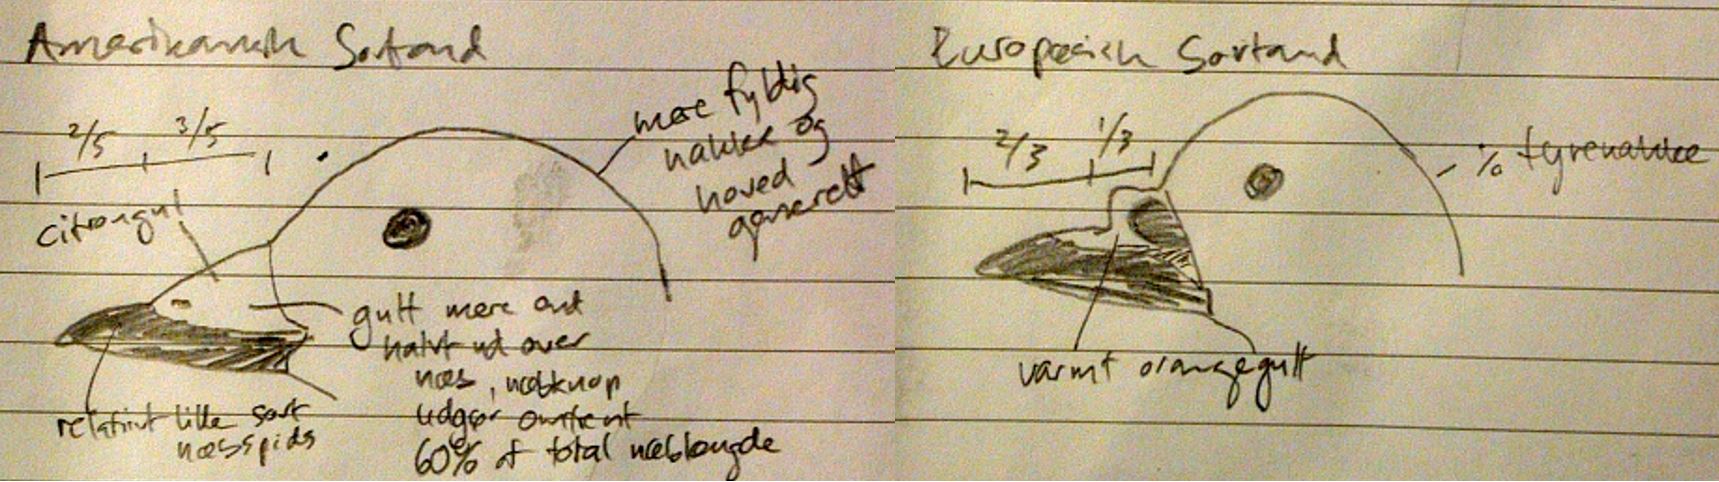 Amerikansk Sortand
2/5 3/5
citrongul
mere fyldig
nakke og
hoved
generelt
gult mere end
halvt ud over
næb, næbknop
udgør omtrent
60% af total næblængde
relativt lille sort
næbspids
Europæisk Sortand
2/3 1/3
% tyrenakke
varmt orangegult